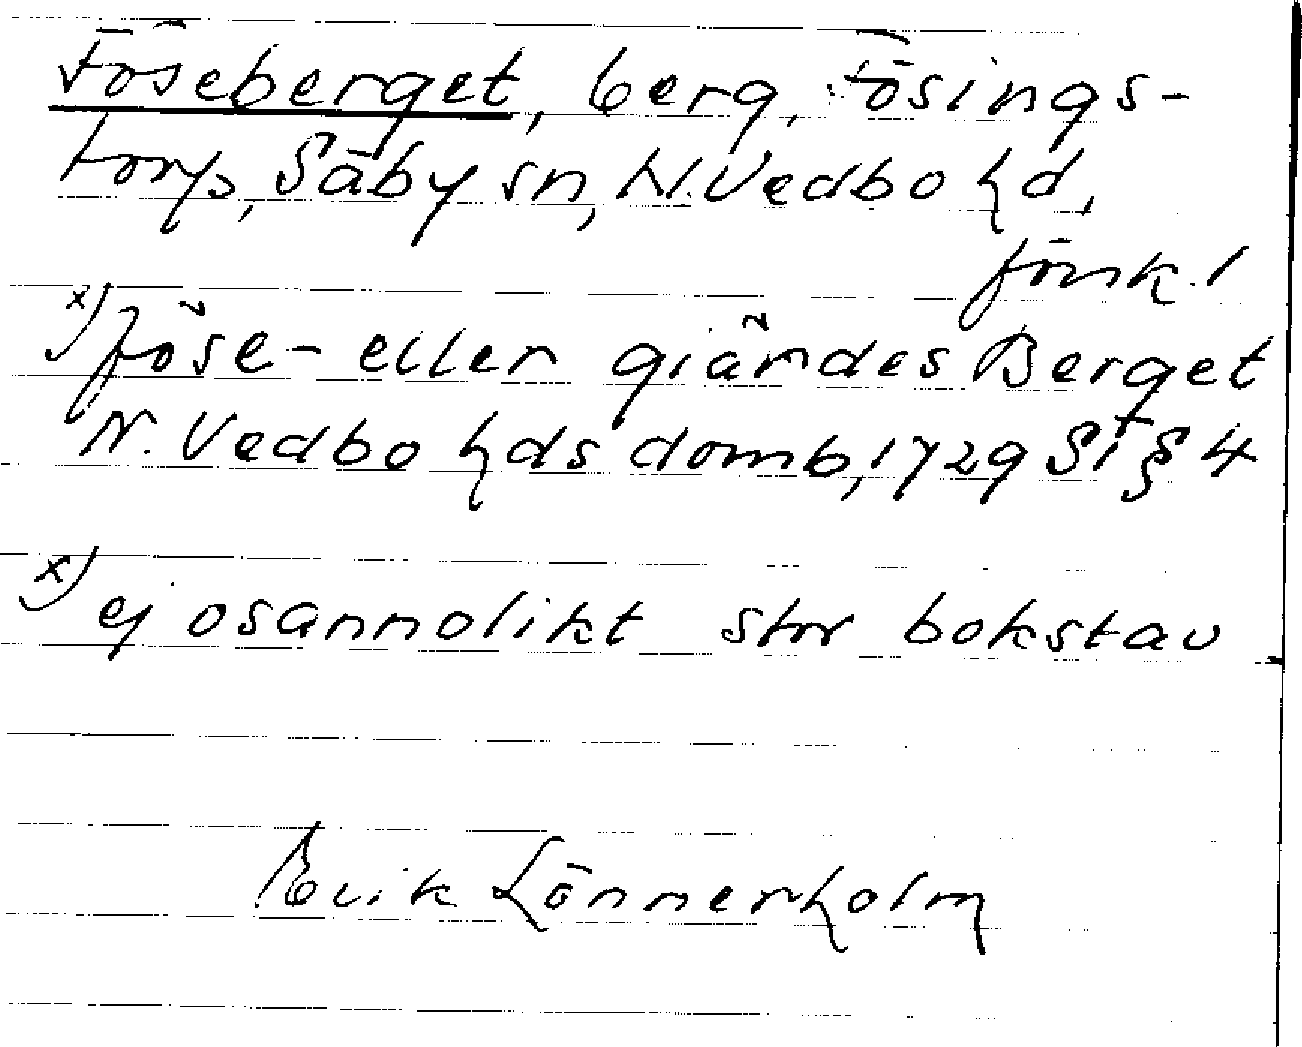 Föseberget, berg, Fösings-
torp, Säby sn, N. Vedbo hd,
Jönk. l
x) föse- eller giärdes Berget
N. Vedbo hds domb, 1729 St § 4
x) ej osannolikt stor bokstav
Erik Lönnerholm